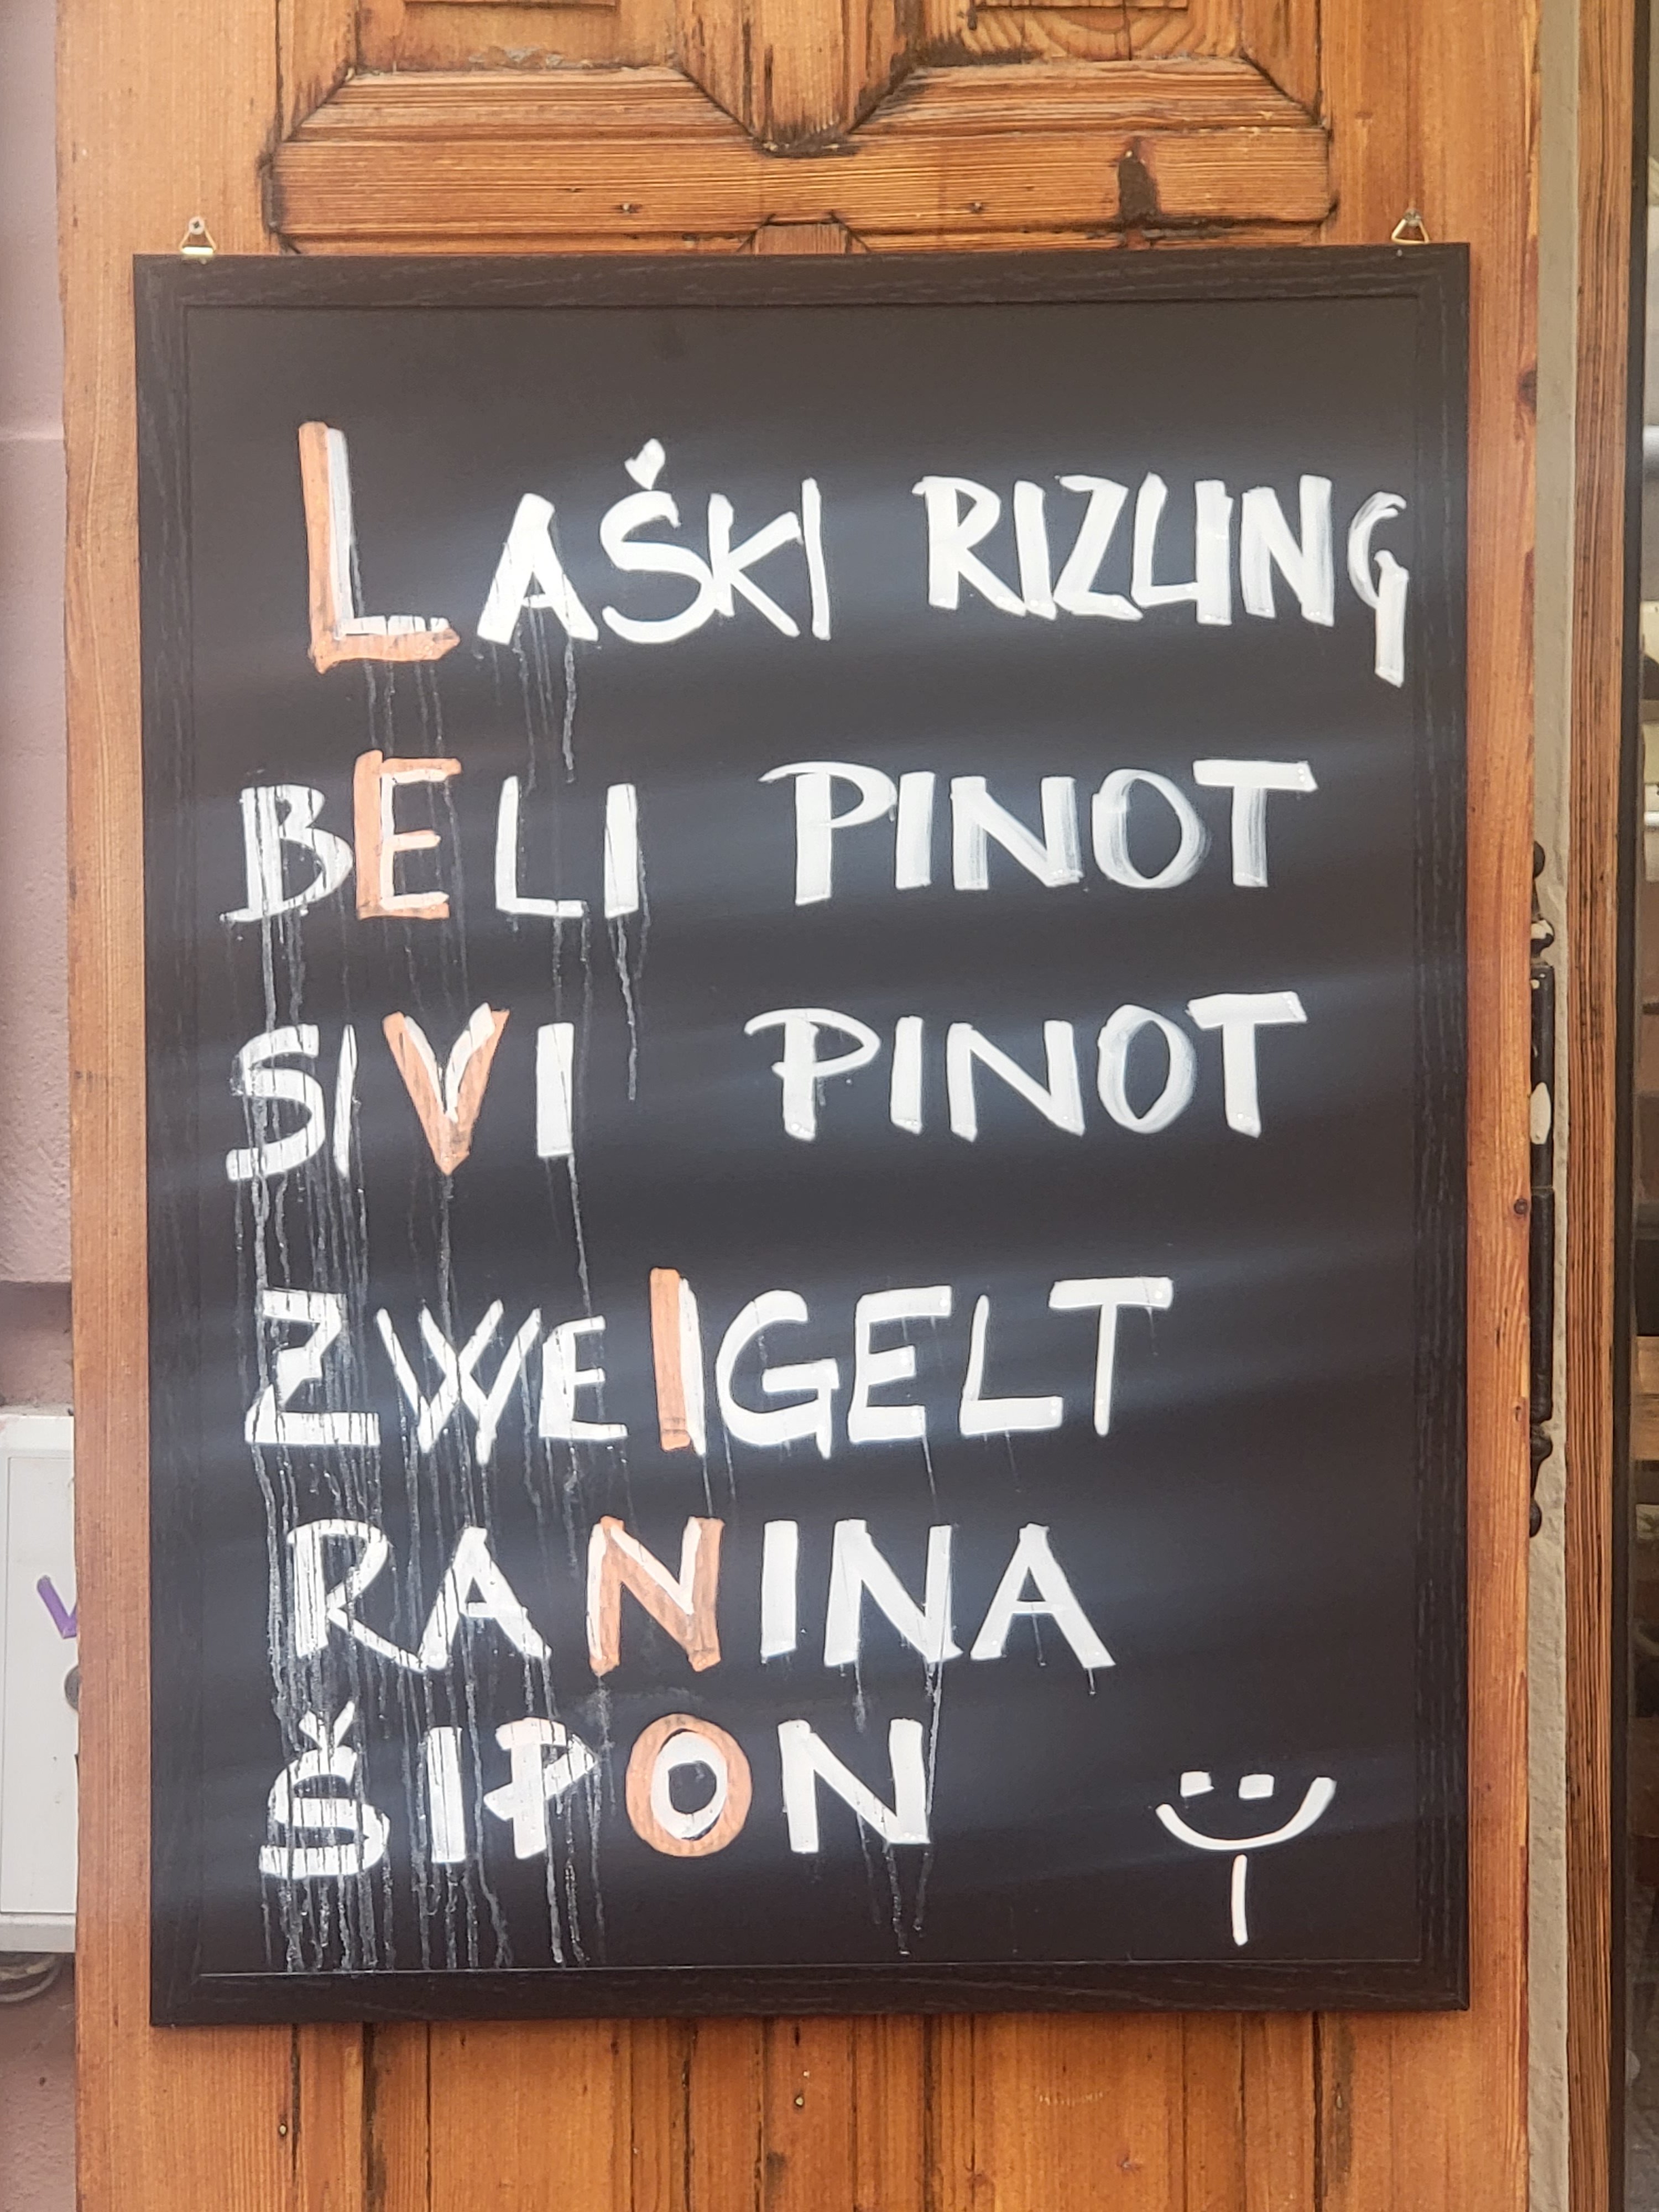 LAŠKI RIZLING
BELI PINOT
SIVI PINOT
ZWEIGELT
RANINA
ŠIPON